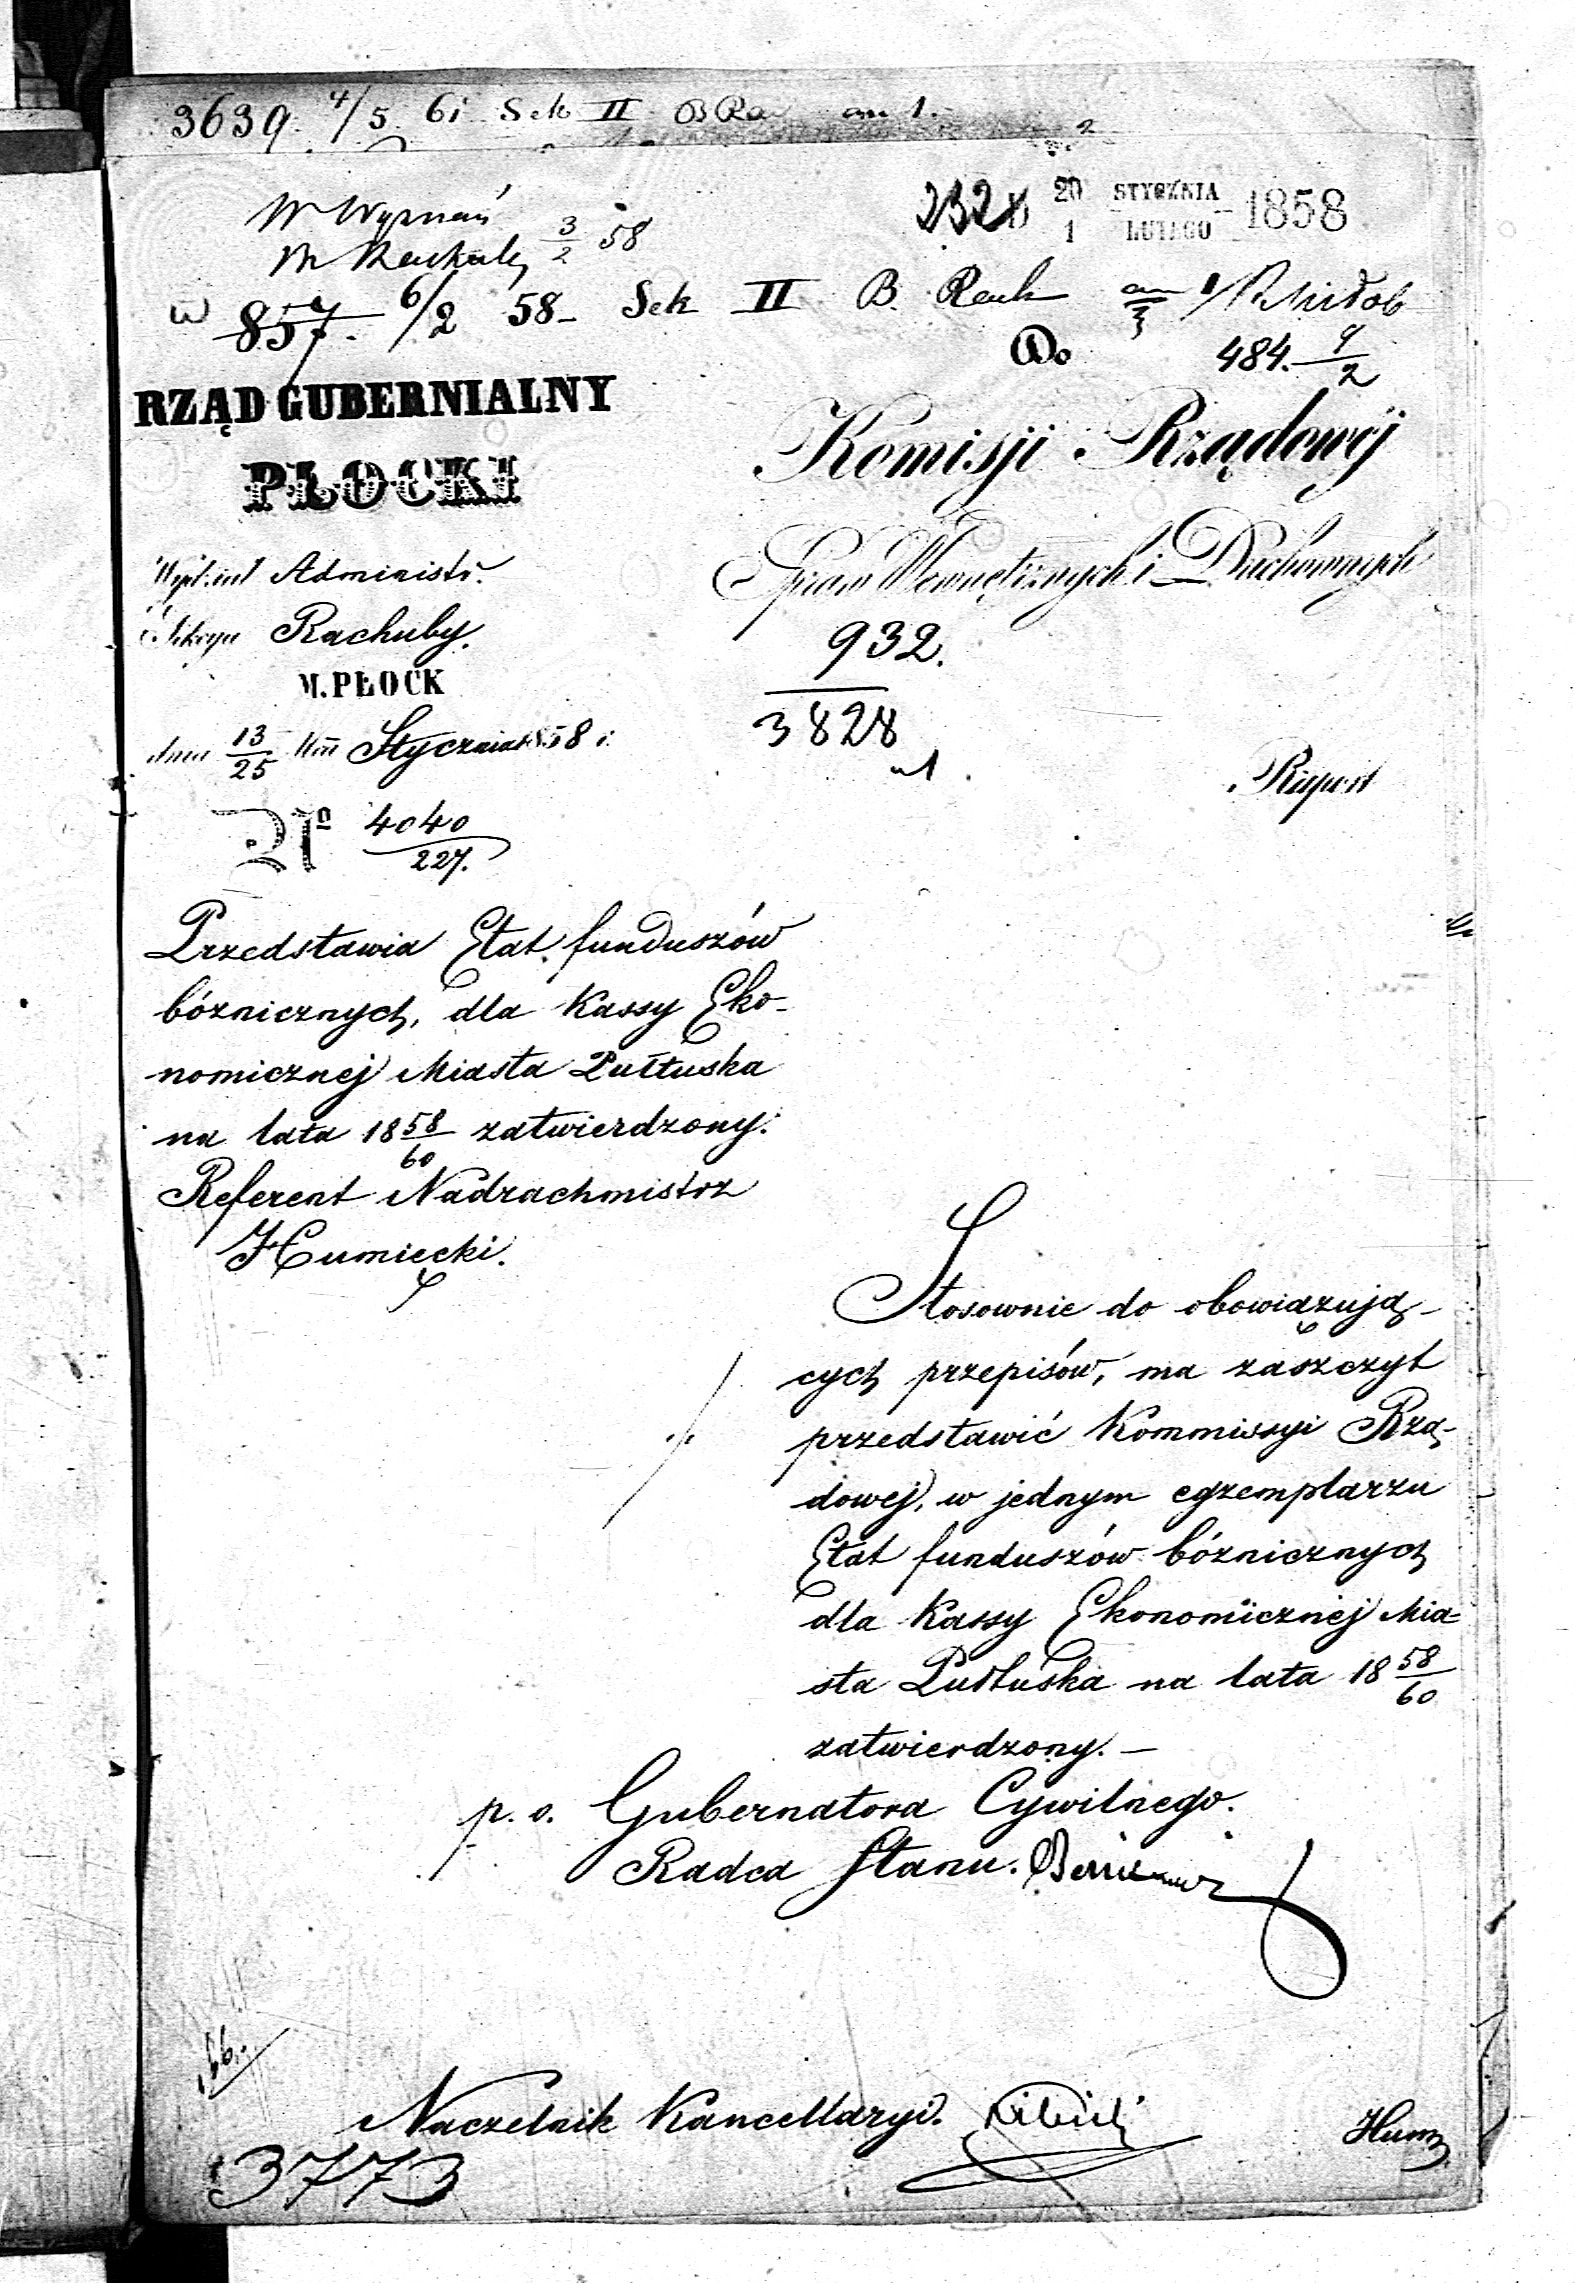 3639. 4/5 61 Sek II B Ra
3/2 58
20 STYCZNIA
1 LUTEGO 1858
W 857. 6/2 58 - Sek II B. Rach
Do
484. 4/2
RZĄD GUBERNIALNY
PŁOCKI
Komisji Rządowéj
Spraw Wewnętrznych i Duchownych
Wydział Administr.
Sekcya Rachuby.
M. PŁOCK
dnia 13/25 Mca Stycznia 1858 r.
No 4040/227.
932.
3828
Raport
Przedstawia Etat funduszów
bóżnicznych, dla Kassy Eko-
nomicznej Miasta Pułtuska
na lata 1858/60 zatwierdzony.
Referent Nadrachmistrz
Humięcki.
Stosownie do obowiązują-
cych przepisów, ma zaszczyt
przedstawić Kommissyi Rzą-
dowej, w jednym egzemplarzu
Etat funduszów bóżnicznych
dla Kassy Ekonomicznéj Mia-
sta Pułtuska na lata 1858/60
zatwierdzony. -
p. o. Gubernatora Cywilnego.
Radca Stanu.
Naczelnik Kancellaryi.
Hum
3773